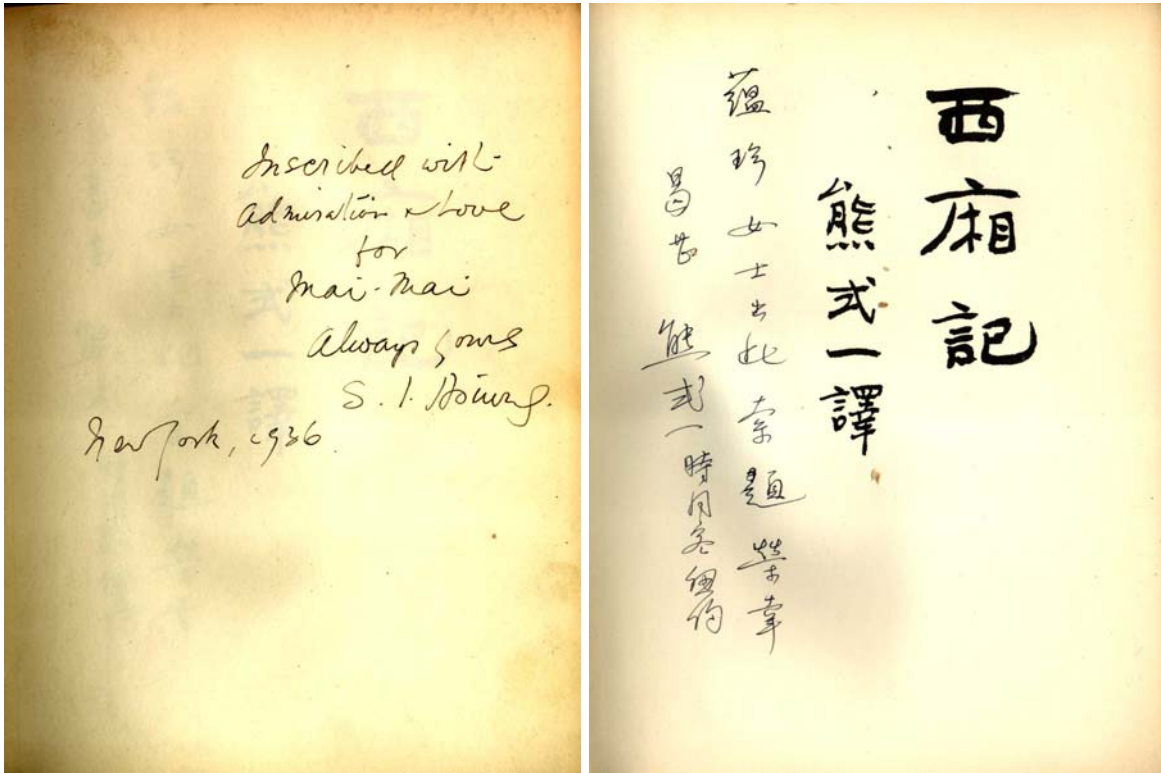 Inscribed with
admiration & Love
for
Mai-Mai
Always yours
S. I. Hsiung.
New York, 1936.
西廂記
熊式一譯
蘊珍女士出此索題榮幸
曷甚 熊式一時同客紐約